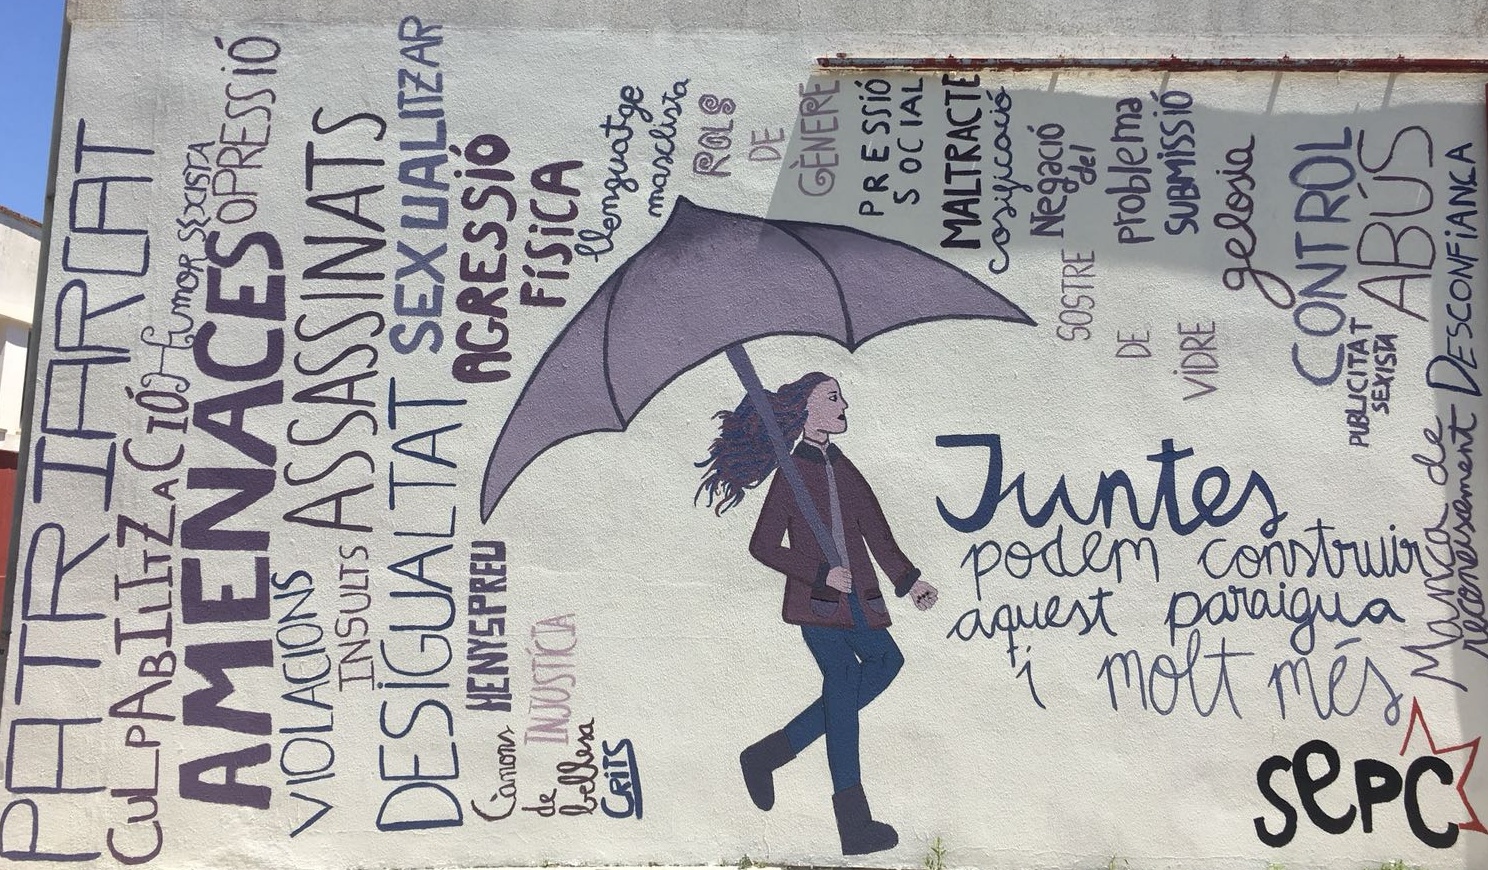 PATRIARCAT
CULPABILITZACIÓ
Humor sexista
AMENACES
OPRESSIÓ
VIOLACIONS
ASSASSINATS
INSULTS
DESIGUALTAT
SEXUALITZAR
AGRESSIÓ
FÍSICA
MENYSPREU
INJUSTÍCIA
Cànons
de
bellesa
CRITS
llenguatge
masclista
ROLS
DE
GÈNERE
PRESSIÓ
SOCIAL
MALTRACTE
cosificació
Negació
del
problema
SUBMISSIÓ
SOSTRE
DE
VIDRE
gelosia
CONTROL
PUBLICITAT
SEXISTA
ABÚS
DESCONFIANÇA
Manca de
reconeixement
Juntes
podem construir
aquest paraigua
i molt més
SEPC